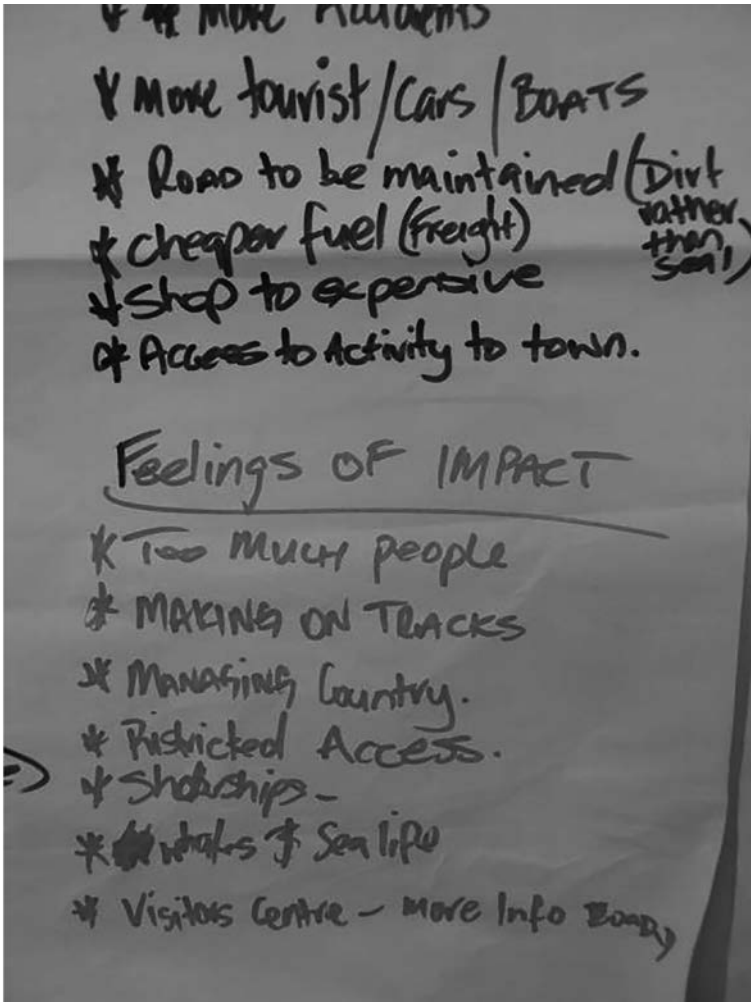 * More Accidents
* More tourist/Cars/BOATS
* ROAD to be maintained (Dirt rather than seal)
* cheaper fuel (Freight)
* Shop to expensive
* Access to Activity to town.
Feelings OF IMPACT
* Too Much people
* MAKING ON TRACKS
* MANAGING Country.
* Ristricked Access.
*
* whales & Sea life
* Visitors Centre - More Info